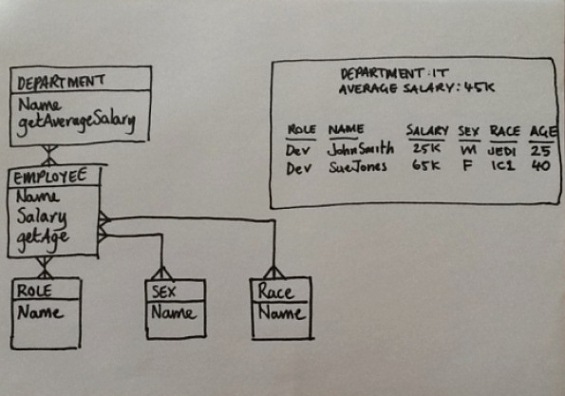 DEPARTMENT
Name
getAverageSalary
EMPLOYEE
Name
Salary
getAge
ROLE
Name
SEX
Name
Race
Name
DEPARTMENT: IT
AVERAGE SALARY: 45K
ROLE NAME SALARY SEX RACE AGE
Dev John Smith 25K M JEDI 25
Dev Sue Jones 65K F IC1 40